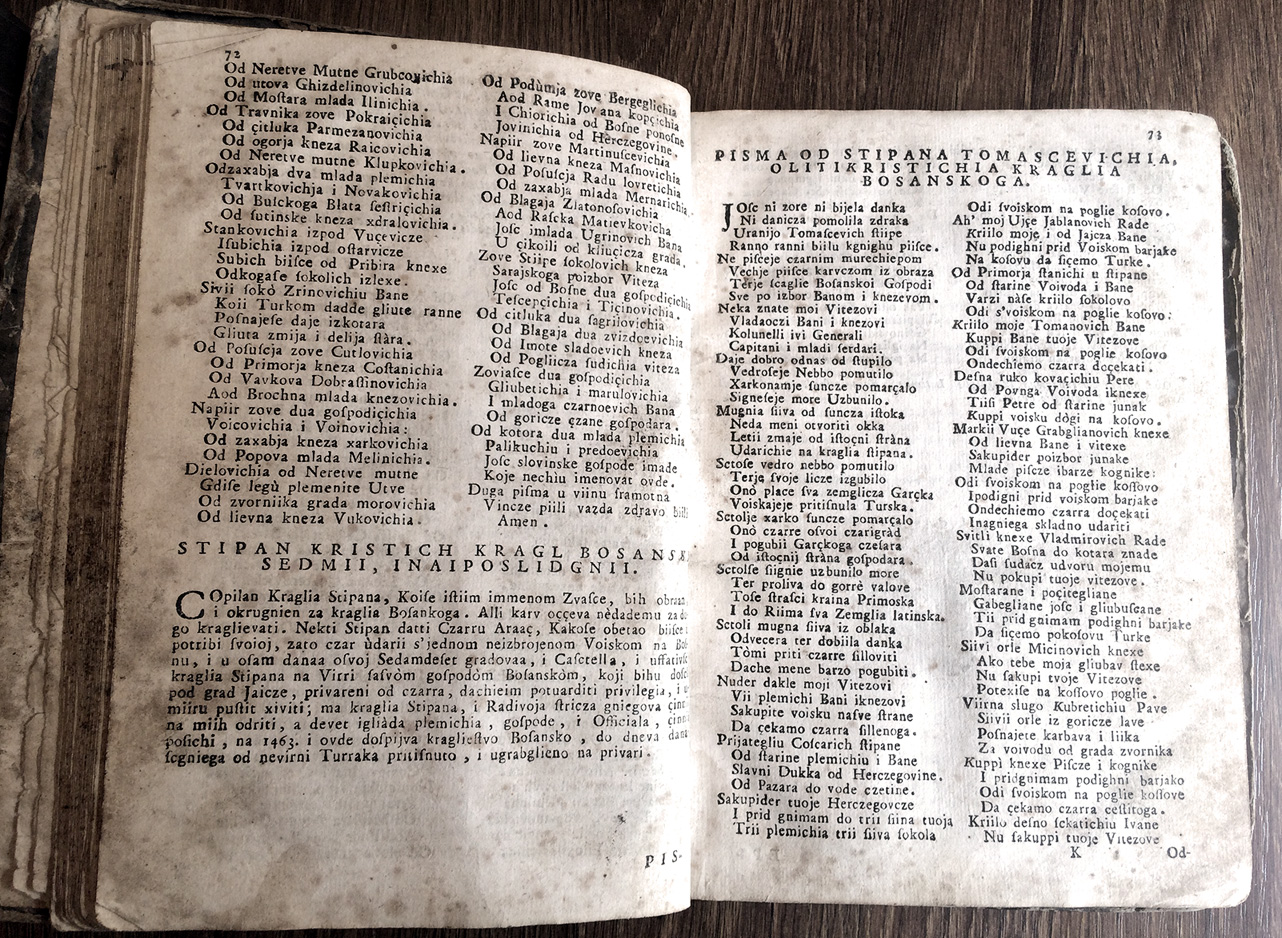 72
Od Neretve Mutne Grubcovichia
Od utova Ghizdelinovichia
Od Moſtara mlada Ilinichia.
Od Travnika zove Pokraiçichia
Od çitluka Parmezanovichia
Od ogorja kneza Raicovichia
Od Neretve mutne Klupkovichia.
Odzaxabja dva mlada plemichia
Tvartkovichja i Novakovichia
Od Buſckoga Blata ſeſtriçichia
Od ſutinske kneza xdralovichia.
Stankovichia izpod Vuçevicze
Iſubichia izpod oſtarvicze
Subich biiſce od Pribira knexe
Odkogaſe ſokolich izlexe.
Sivii ſokò Zrinovichiu Bane
Koii Turkom dadde gliute ranne
Poſnajeſe daje izkotara
Gliuta zmija i delija ſtàra.
Od Poſuſcja zove Cutlovichia
Od Primorja kneza Coſtanichia
Od Vavkova Dobraſlinovichia
Aod Brochna mlada knezovichia.
Napiir zove dua goſpodiçichia
Voicovichia i Voinovichia:
Od zaxabja kneza xarkovichia
Od Popova mlada Melinichia.
Dielovichia od Neretve mutne
Gdiſe legù plemenite Utve
Od zvorniika grada morovichia
Od lievna kneza Vukovichia.
Od Podùmja zove Bergeglichia
Aod Rame Jovana kopçichia
I Chiorichia od Boſne ponoſne
Jovinichia od Hèrczegovine.
Napiir zove Martinuſcevichia
Od lievna kneza Maſnovichia
Od Poſuſcja Radu lovretichia
Od zaxabja mlada Mernarichia.
Od Blagaja Zlatonoſovichia
Aod Raſcka Matievkovicha
Joſc imlada Ugrinovich Bana
U çikoili od kliuçicza grada.
Zove Stiipe ſokolovich kneza
Sarajskoga poizbor Viteza
Joſc od Boſne dua goſpodiçichia
Teſcepçichia i Tiçinovichia.
Od citluka dua ſagriiovichia
Od Blagaja dua zvizdoevichia
Od Imote sladoevich kneza
Od Pogliicza ſudichia viteza
Zoviaſce dua goſpodiçichia
Gliubetichia i marulovichia
I mladoga czarnoevich Bana
Od goricze çzane goſpodara.
Od kotora dua mlada plemichia
Palikuchiu i predoevichia
Joſc slovinske goſpode imade
Koje nechiu imenovat ovde.
Duga piſma u viinu ſramotna
Vincze piili vazda zdravo biili
Amen.
STIPAN KRISTICH KRAGL BOSANSKI
SEDMII, INAIPOSLIDGNII.
COpilan Kraglia Stipana, Koiſe iſtiim immenom Zvaſce, bih obran,
i okrugnien za kraglia Boſankoga. Alli karv occeva nèdademu za du
go kraglievati. Nekti Stipan datti Czarru Araaç, Kakoſe obetao biiſce
potribi ſvoioj, zato czar ùdarii s'jednom neizbrojenom Voiskom na Boſ
nu, i u oſam danaa oſvoj Sedamdeſet gradovaa, i Caſctella, i uffativſc
kraglia Stipana na Virri ſaſvòm goſpodòm Boſanskòm, koji bihu doſc
pod grad Jaicze, privareni od czarra, dachieim potuarditi privilegia, i u
miiru puſtit xiviti; ma kraglia Stipana, i Radivoja ſtricza gniegova çini
na miih odriti, a devet igliàda plemichia, goſpode, i Officiala, çini
poſichi, na 1463. i ovde doſpijva kraglieſtvo Boſansko, do dneva dana
ſcgniega od nevirni Turraka pritiſnuto, i ugrabglieno na privari.
PIS-
73
PISMA OD STIPANA TOMASCEVICHIA,
OLITIKRISTICHIA KRAGLIA
BOSANSKOGA.
JOſc ni zore ni bijela danka
Ni danicza pomolila zdraka
Uranijo Tomaſcevich ſtiipe
Ranno ranni biilu kgnighu piiſce.
Ne piſceje czarnim murechiepom
Vechje piiſce karvczom iz obraza
Tèrje ſcaglie Boſanskoi Goſpodi
Sve po izbor Banom i knezevom.
Neka znate moi Vitezovi
Vladaoczi Bani i knezovi
Kolunelli ivi Generali
Capitani i mladi ſerdari.
Daje dobro odnas od ſtupilo
Vedroſeje Nebbo pomutilo
Xarkonamje ſuncze pomarçalo
Signeſeje more Uzbunilo.
Mugnia ſiiva od ſuncza iſtoka
Neda meni otvoriti okka
Letii zmaje od iſtoçni ſtràna
Udarichie na kraglia ſtipana.
Sctoſe vedro nebbo pomutilo
Terje ſvoje licze izgubilo
Onò place ſva zemglicza Garçka
Voiskajeje pritiſnula Turska.
Sctolje xarko ſuncze pomarçalo
Onò czarre oſvoi czarigràd
I pogubii Garçkoga czeſara
Od iſtoçnij ſtràna goſpodara.
Sctolſe ſiignie uzbunilo more
Ter proliva do gorrè valove
Toſe ſtraſci kraina Primoska
I do Riima ſva Zemglia latinska.
Sctoli mugna ſiiva iz oblaka
Odvecera ter dobiila danka
Tòmi priti czarre ſilloviti
Dache mene barzò pogubiti.
Nuder dakle moji Vitezovi
Vii plemichi Bani iknezovi
Sakupite voisku naſve ſtrane
Da çekamo czarra ſillenoga.
Prijategliu Coſcarich ſtipane
Od ſtarine plemichiu i Bane
Slavni Dukka od Herczegovine.
Od Pazara do vode czetine.
Sakupider tuoje Herczegovcze
I prid gnimam do trii ſiina tuoja
Trii plemichia trii ſiiva ſokola
Odi ſvoiskom na poglie koſovo.
Ah' moj Ujçe Jablanovich Rade
Kriilo moje i od Jajcza Bane
Nu podighni prid Voiskom barjake
Na koſovu da ſiçemo Turke.
Od Primorja ſtanichi u ſtipane
Od ſtarine Voivoda i Bane
Varzi nàſe kriilo ſokolovo
Odi s'voiskom na poglie koſovo:
Kriilo moje Tomanovich Bane
Kuppi Bane tuoje Vitezove
Odi ſvoiskom na poglie koſovo
Ondechiemo czarra doçekati.
Deſna ruko kovaçichiu Pere
Od Povnga Voivoda iknexe
Tiiſi Petre od ſtarine junak
Kuppi voisku dògi na koſovo.
Markii Vuçe Grabglianovich knexe
Od lievna Bane i vitexe
Sakupider poizbor junake
Mlade piſcze ibarze kognike:
Odi ſvoiskom na poglie koſſovo
Ipodigni prid voiskom barjake
Ondechiemo czarra doçekati
Inagniega skladno udariti
Svitli knexe Vladmirovich Rade
Svate Boſna do kotara znade
Daſi ſudacz udvoru mojemu
Nu pokupi tuoje vitezove.
Moſtarane i poçitegliane
Gabegliane joſc i gliubuſcane
Tii prid gnimam podighni barjake
Da ſiçemo pokoſovu Turke
Siivi orle Micinovich knexe
Ako tebe moja gliubav ſlexe
Nu ſakupi tvoje Vitezove
Potexiſe na koſſovo poglie.
Viirna slugo Kubretichiu Pave
Siivii orle iz goricze lave
Poſnajete karbava i liika
Za voivodu od grada zvornika
Kuppì knexe Piſcze i kognike
I pridgnimam podighni barjako
Odi ſvoiskom na poglie koſſove
Da çekamo czarra ceſtitoga.
Kriilo deſno ſckatichiu Ivane
Nu ſakuppi tuoje Vitezove
K
Od-